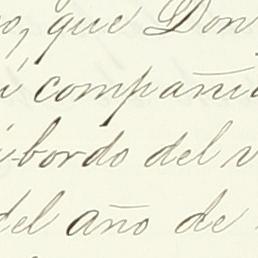 que Don
compañi
bordo del
del año de